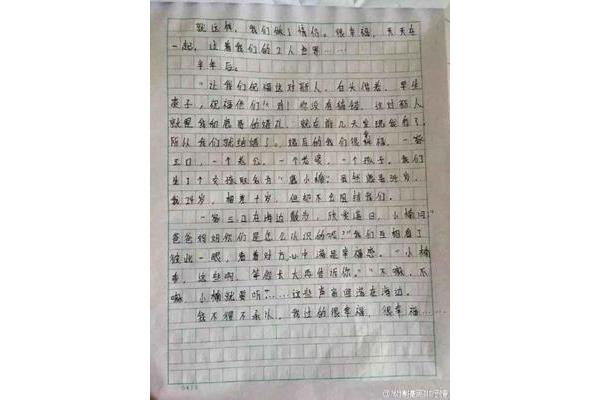 就这样，我们做了情侣。很幸福，天天在
一起，过着我们的2人世界……
半年后。
"让我们祝福这对丽人，白头偕老，早生
贵子，祝福他们！"对！你没有猜错，这对丽人
就是我和
的婚礼，就在前几天发现我有了，
所以我们就结婚了。婚后的我们很幸福，一家
三口，一个老公，一个老婆，一个孩子。我们
生了个女孩取名为"
小楠"虽然
34岁，
我24岁，相差十岁，但却不会阻碍我们。
一家三口在海边散步，欣赏落日，小楠问："
爸爸妈妈你们是怎么认识的呢？"我们互相看了
彼此一眼，看着对方，心中满是幸福感。"小楠
乖，这些啊，等你长大再告诉你。""不嘛，不
嘛，小楠就要听"……这些声音回荡在海边。
我不得不承认，我过的很幸福，很幸福……